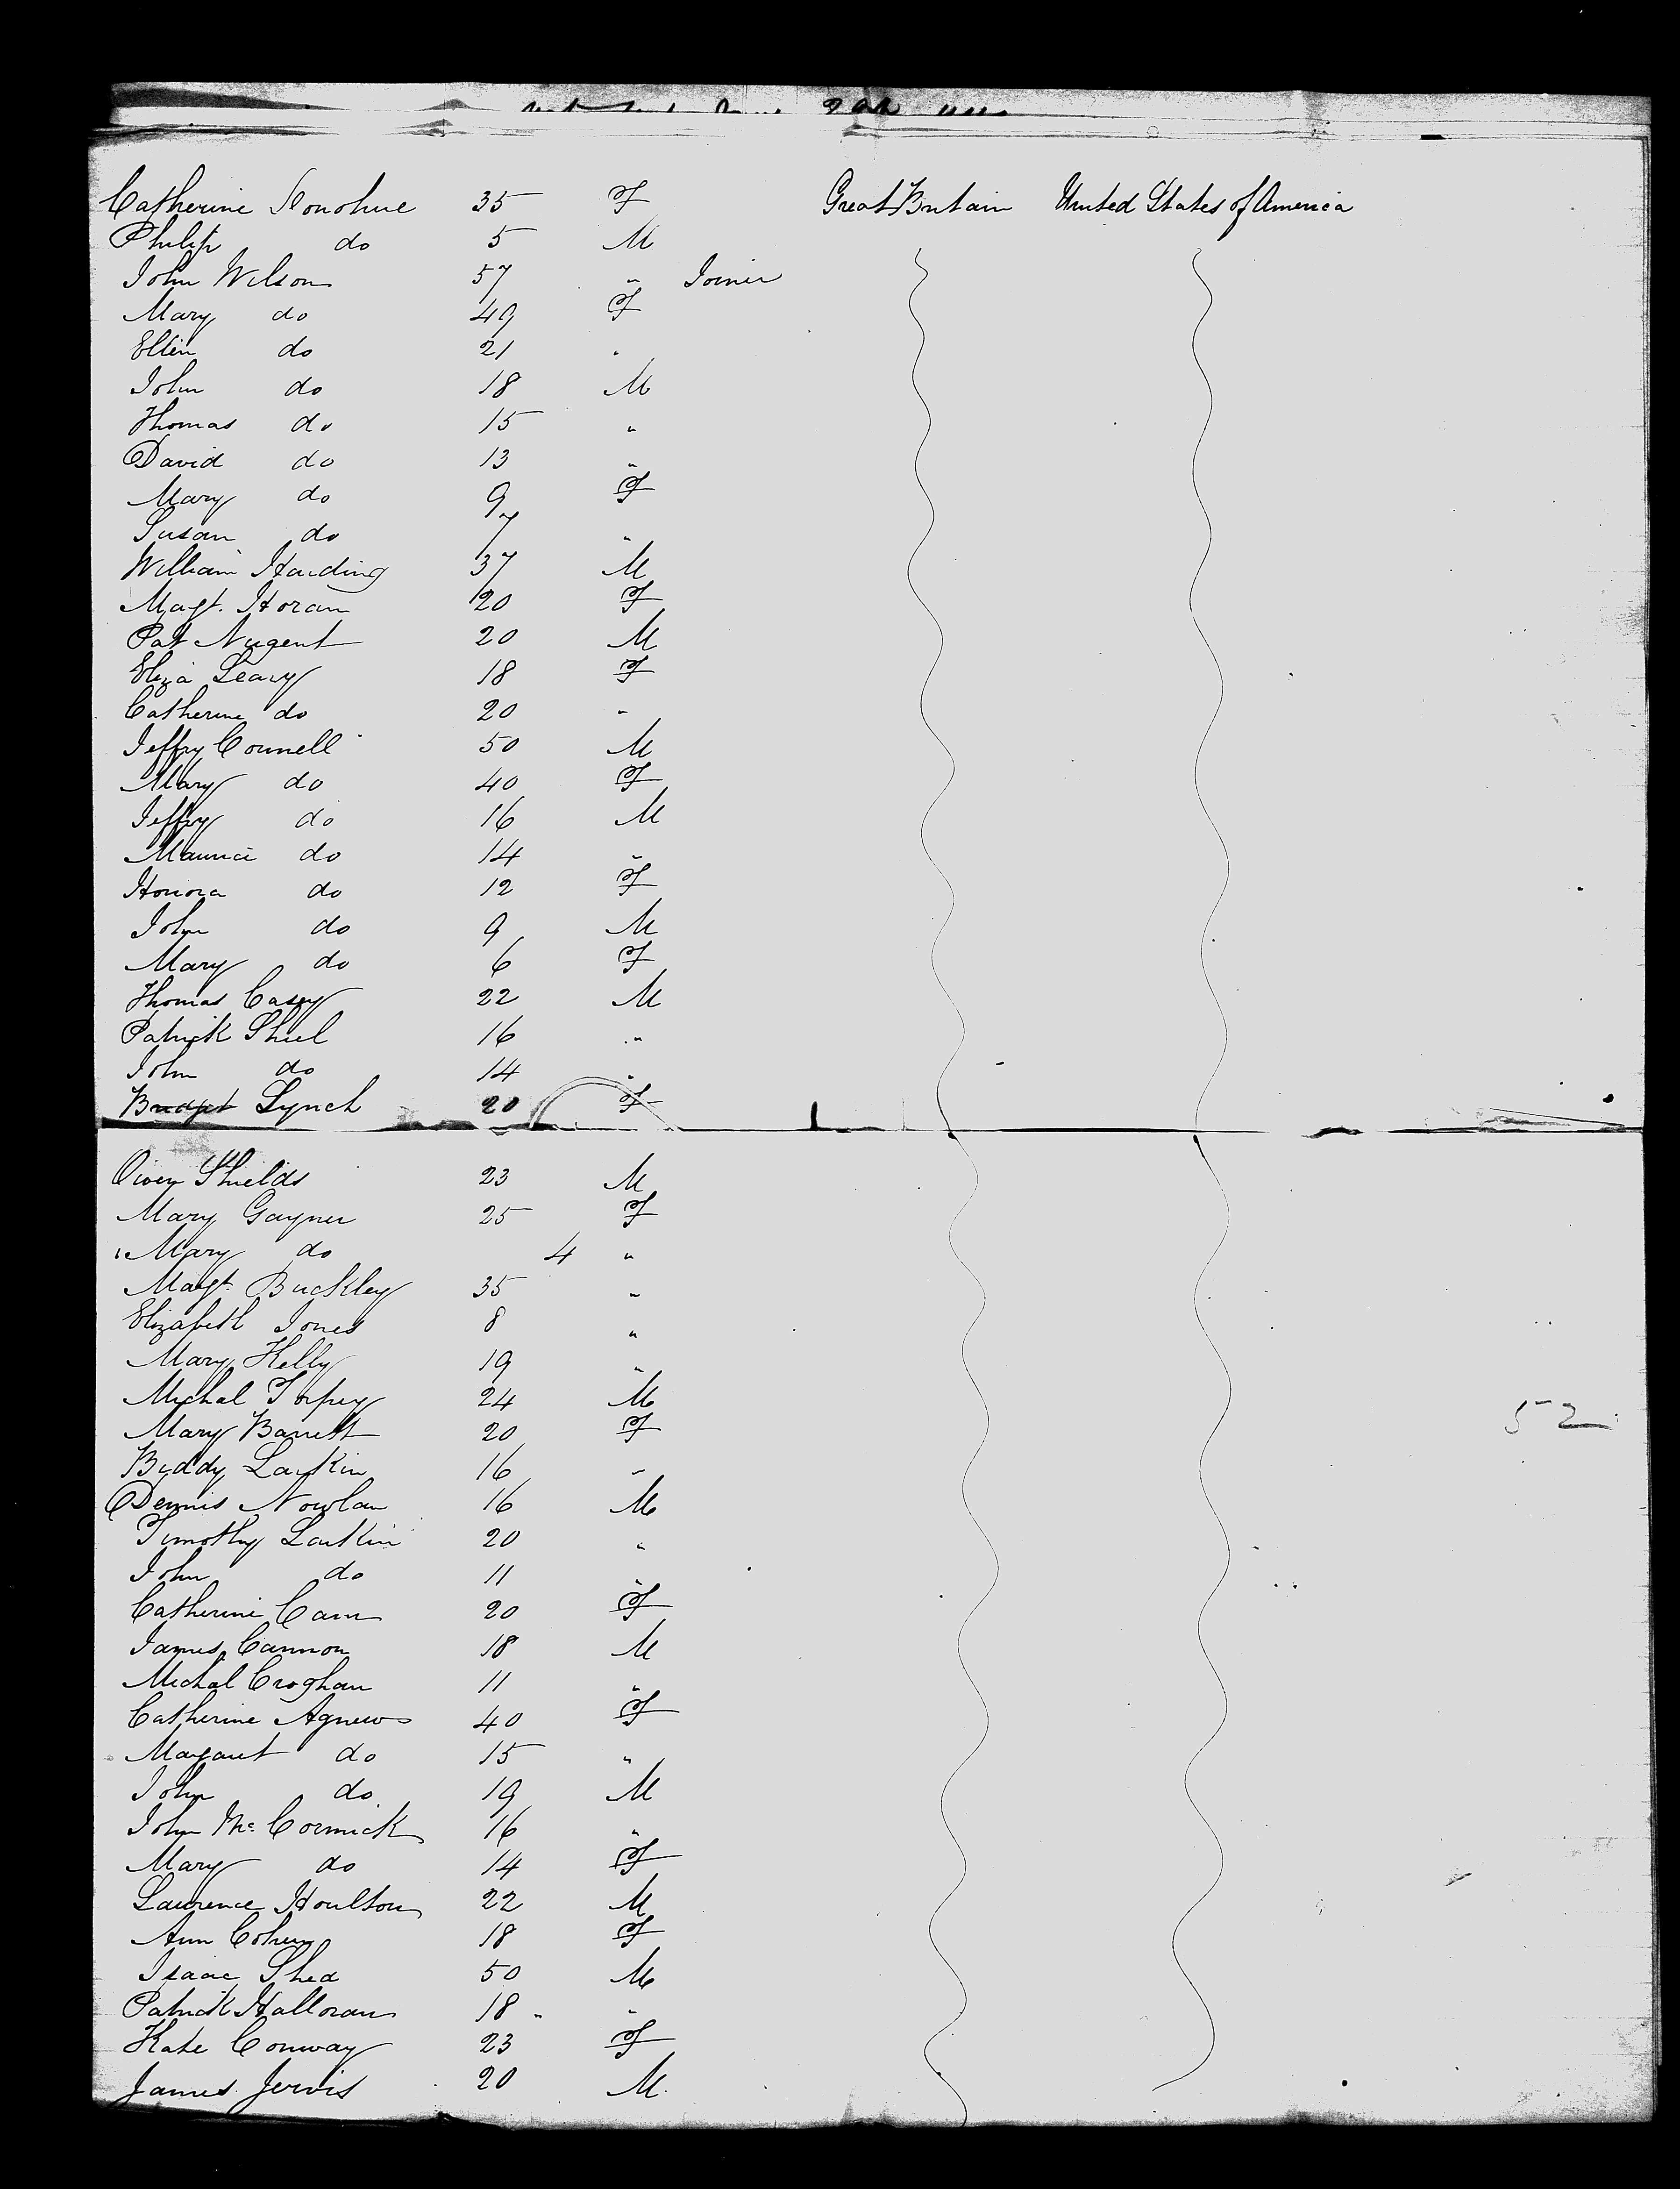 Catherine Donohue 35 F Great Britain United States of America
Philip do 5 M
John Wilson 57 " Joiner
Mary do 49 F
Ellen do 21 "
John do 18 M
Thomas do 15 "
David do 13 "
Mary do 9 F
Susan do 7 "
William Harding 37 M
Magt. Horan 20 F
Pat Nugent 20 M
Eliza Leavy 18 F
Catherine do 20 "
Jeffry Connell 50 M
Mary do 40 F
Jeffry do 16 M
Maurice do 14 "
Honora do 12 F
John do 9 M
Mary do 6 F
Thomas Casey 22 M
Patrick Shiel 16 "
John do 14 "
Bridget Lynch 20 F
Owen Shields 23 M
Mary Gayner 25 F
Mary do 4 "
Magt. Buckley 35 "
Elizabeth Jones 8 "
Mary Kelly 19 "
Michal Torpey 24 M
Mary Barrett 20 F
52
Biddy Larkin 16 "
Dennis Nowlan 16 M
Timothy Larkin 20 "
John do 11 "
Catherine Cain 20 F
James Cannon 18 M
Michal Croghan 11 "
Catherine Agnew 40 F
Margaret do 15 "
John do 19 M
John McCormick 16 "
Mary do 14 F
Laurence Houlton 22 M
Ann 18 F
Isaac Shea 50 M
Patrick Halloran 18 "
Kate Conway 23 F
James Jervis 20 M